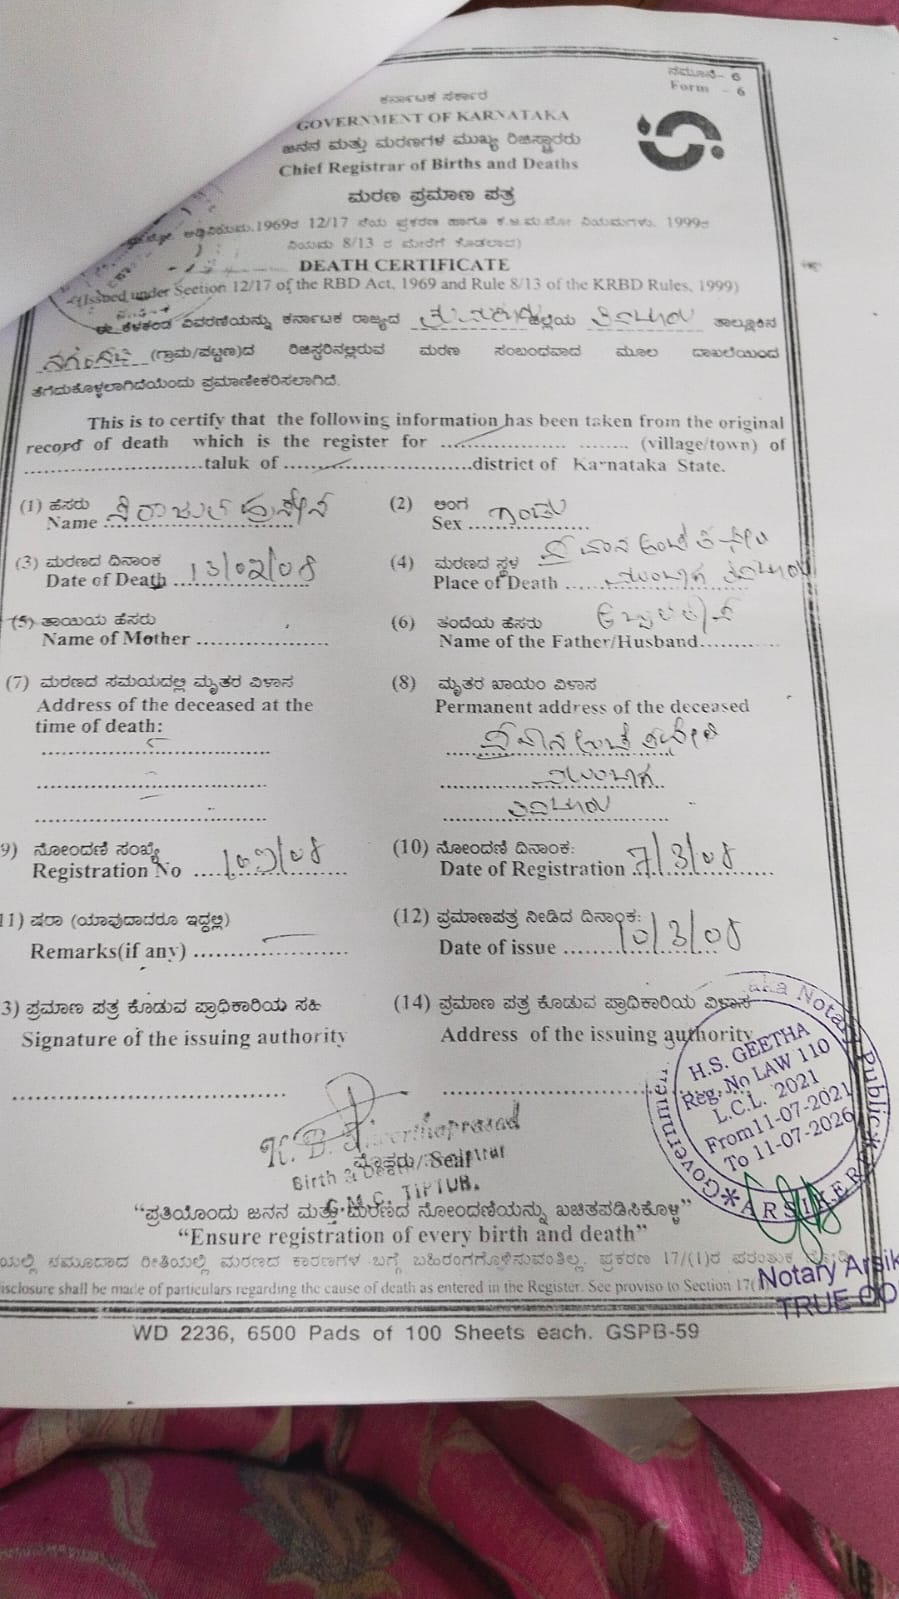 ನಮೂನೆ- 6
Form - 6
ಕರ್ನಾಟಕ ಸರ್ಕಾರ
GOVERNMENT OF KARNATAKA
ಜನನ ಮತ್ತು ಮರಣಗಳ ಮುಖ್ಯ ರಿಜಿಸ್ಟ್ರಾರರು
Chief Registrar of Births and Deaths
ಮರಣ ಪ್ರಮಾಣ ಪತ್ರ
1969ರ 12/17 ನೆಯ ಪ್ರಕರಣ ಹಾಗೂ ಕ.ಜ.ಮ.ನೋ ನಿಯಮಗಳು. 1999ರ
ನಿಯಮ 8/13 ರ ಮೇರೆಗೆ ಕೊಡಲಾದ)
DEATH CERTIFICATE
(Issued under Section 12/17 of the RBD Act, 1969 and Rule 8/13 of the KRBD Rules, 1999)
ಈ ಕೆಳಕಂಡ ವಿವರಣೆಯನ್ನು ಕರ್ನಾಟಕ ರಾಜ್ಯದ ತುಮಕೂರು ಜಿಲ್ಲೆಯ ತಿಪಟೂರು ತಾಲ್ಲೂಕಿನ
(ಗ್ರಾಮ/ಪಟ್ಟಣ)ದ ರಿಜಿಸ್ಟರಿನಲ್ಲಿರುವ ಮರಣ ಸಂಬಂಧವಾದ ಮೂಲ ದಾಖಲೆಯಿಂದ
ತೆಗೆದುಕೊಳ್ಳಲಾಗಿದೆಯೆಂದು ಪ್ರಮಾಣೀಕರಿಸಲಾಗಿದೆ.
This is to certify that the following information has been taken from the original
record of death which is the register for .................... ........ (village/town) of
..............................taluk of ...............................district of Karnataka State.
(1) ಹೆಸರು (2) ಲಿಂಗ
Name Sex ಗಂಡು
(3) ಮರಣದ ದಿನಾಂಕ (4) ಮರಣದ ಸ್ಥಳ
Date of Death 13/02/08 Place of Death ತಿಪಟೂರು
(5) ತಾಯಿಯ ಹೆಸರು (6) ತಂದೆಯ ಹೆಸರು
Name of Mother .................... Name of the Father/Husband............
(7) ಮರಣದ ಸಮಯದಲ್ಲಿ ಮೃತರ ವಿಳಾಸ (8) ಮೃತರ ಖಾಯಂ ವಿಳಾಸ
Address of the deceased at the Permanent address of the deceased
time of death:
ತಿಪಟೂರು
9) ನೋಂದಣಿ ಸಂಖ್ಯೆ (10) ನೋಂದಣಿ ದಿನಾಂಕ:
Registration No Date of Registration 7/3/08
11) ಷರಾ (ಯಾವುದಾದರೂ ಇದ್ದಲ್ಲಿ) (12) ಪ್ರಮಾಣಪತ್ರ ನೀಡಿದ ದಿನಾಂಕ:
Remarks(if any) .................... Date of issue 10/3/08
3) ಪ್ರಮಾಣ ಪತ್ರ ಕೊಡುವ ಪ್ರಾಧಿಕಾರಿಯ ಸಹಿ (14) ಪ್ರಮಾಣ ಪತ್ರ ಕೊಡುವ ಪ್ರಾಧಿಕಾರಿಯ ವಿಳಾಸ
Signature of the issuing authority Address of the issuing authority
Notary Public
H.S. GEETHA
Reg. No LAW 110
L.C.L. 2021
From 11-07-2021
To 11-07-2026
ARSIKERE
K. B.
ಮೊಹರು/Seal
Birth & Death
C.M.C. TIPTUR.
“ಪ್ರತಿಯೊಂದು ಜನನ ಮತ್ತು ಮರಣದ ನೋಂದಣಿಯನ್ನು ಖಚಿತಪಡಿಸಿಕೊಳ್ಳಿ”
“Ensure registration of every birth and death”
ನಮೂದಾದ ರೀತಿಯಲ್ಲಿ ಮರಣದ ಕಾರಣಗಳ ಬಗ್ಗೆ ಬಹಿರಂಗಗೊಳಿಸುವಂತಿಲ್ಲ. ಪ್ರಕರಣ 17/(1)ರ ಪರಂತುಕ
isclosure shall be made of particulars regarding the cause of death as entered in the Register. See proviso to Section 17(
Notary Arsik
TRUE CO
WD 2236, 6500 Pads of 100 Sheets each. GSPB-59